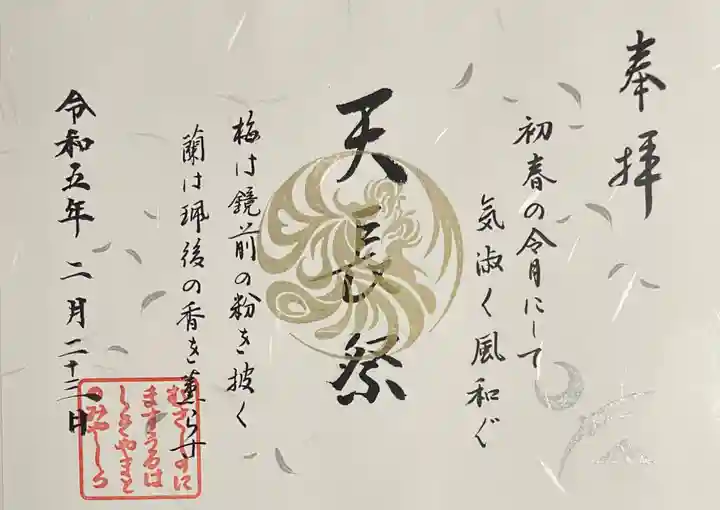 奉拝
初春の令月にして
気淑く風和ぐ
天長祭
梅は鏡前の粉を披く
蘭は珮後の香を薫らす
令和五年 二月二十三日
むさしのに
ますうるは
しきやまと
のみやしろ